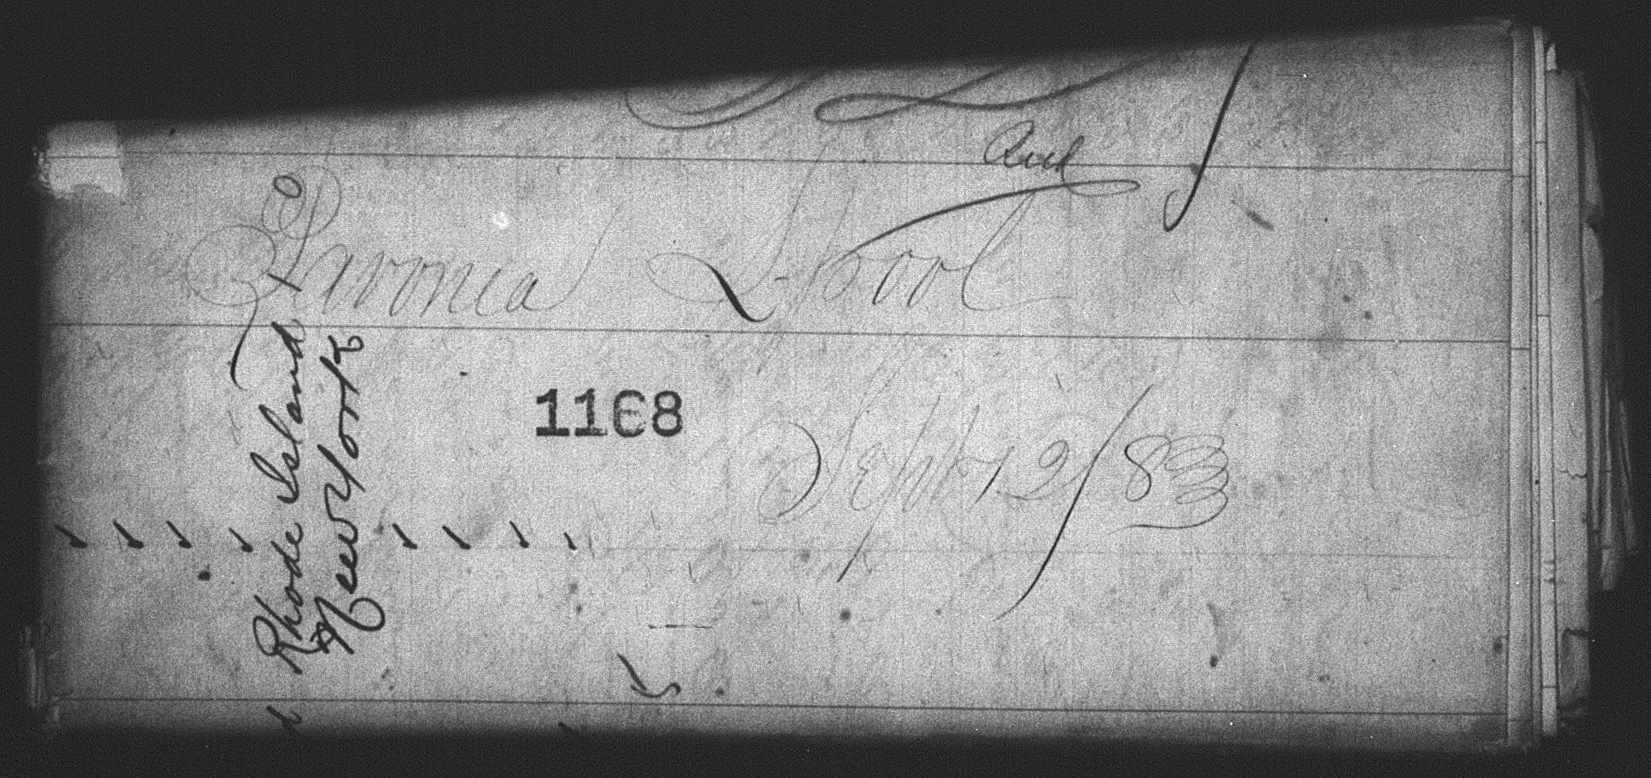 and
Pavonia Pool
1168
Sept 12/83
Rhode Island
New York